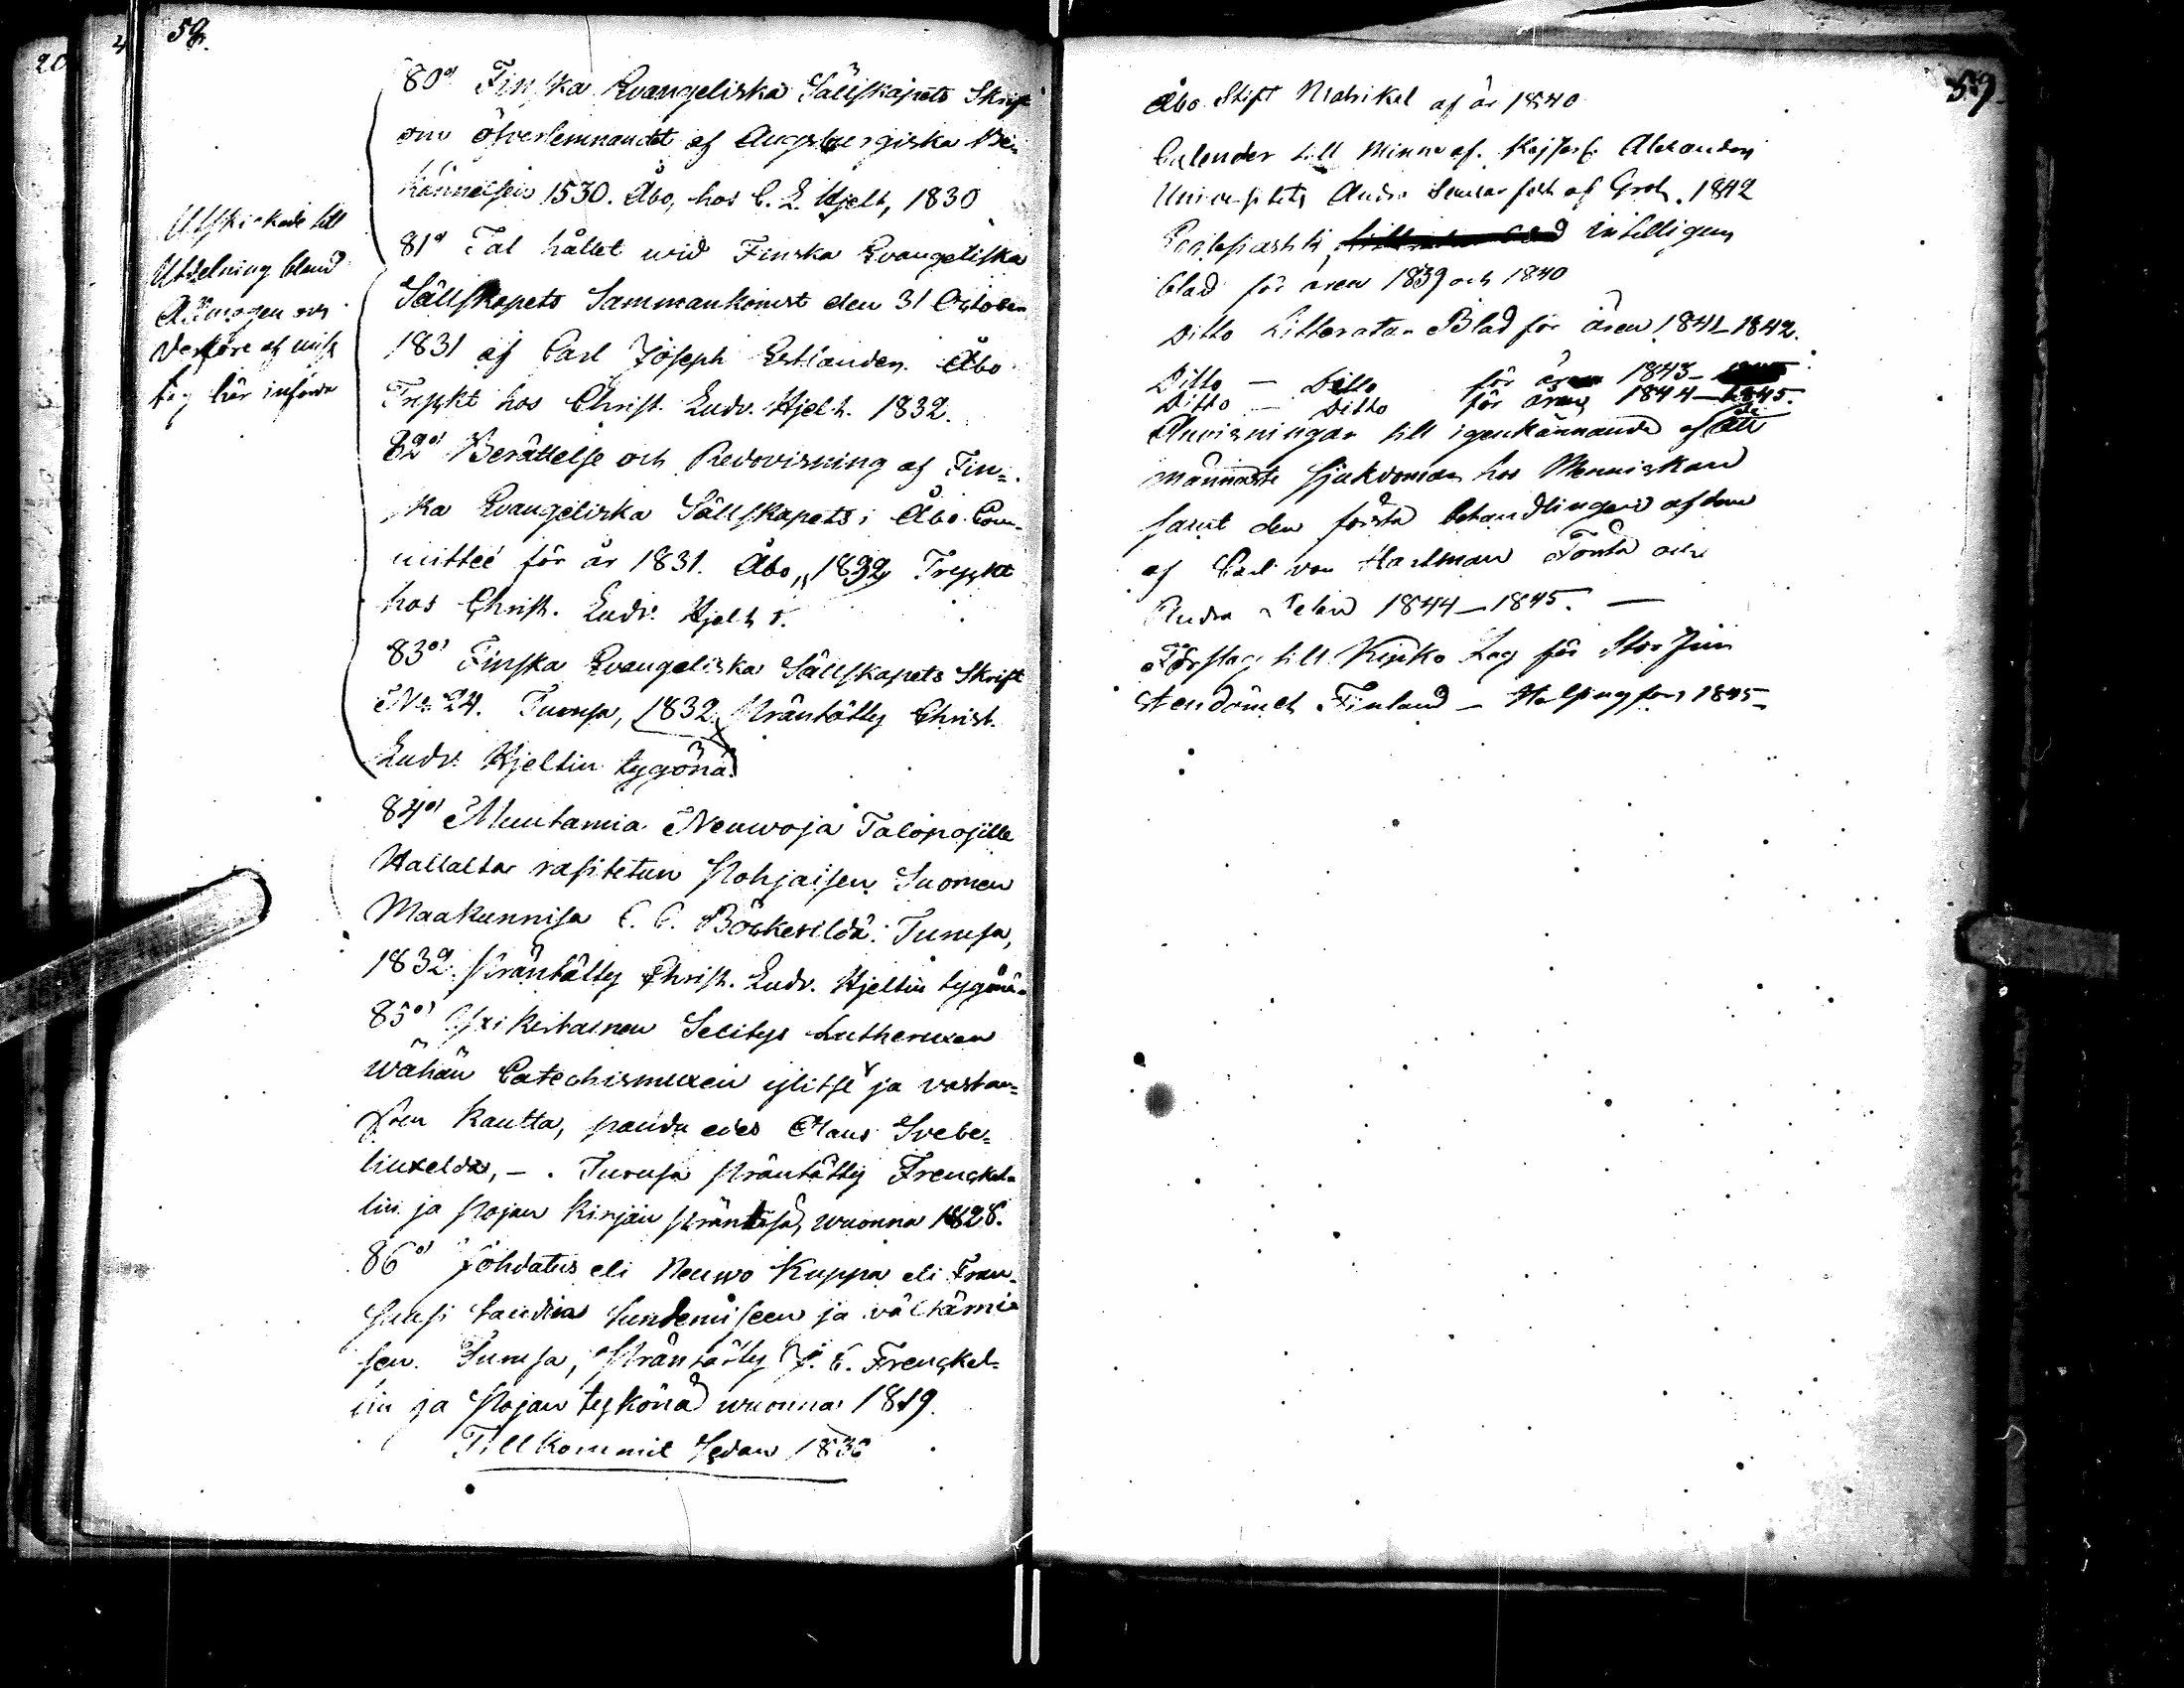 58.
80o) Finska Evangeliska Sällskapets Skrift
om öfverlemnandet af Augsburgiska Be-
kännelsen 1530. Åbo, hos C. L. Hjelt, 1830
Utskickade till
Utdelning bland
Allmogen och
Derföre af miss
tag här införde
81o) Tal hållet wid Finska Evangeliska
Sällskapets Sammankomst den 31 October
1831 af Carl Joseph Estlander. Åbo
Tryckt hos Christ. Ludv. Hjelt. 1832.
82o) Berättelse och Redovisning af Fin-
ska Evangeliska Sällskapets i Åbo Com-
mitteé för år 1831. Åbo, 1832 Tryckt
hos Christ. Ludv. Hjelt.
83o) Finska Evangeliska Sällskapets Skrift
No 24. Turusa, 1832 Präntätty Christ.
Ludv. Hjeltin tygönä
84o) Muutamia Neuwoja Talonpojille
Hallalta rasitetun Pohjaisen Suomen
Maakunnisa C. C. Böckerildä. Turusa,
1832. Präntätty Christ. Ludv. Hjeltin tygönä
85o) Yxikertainen Selitys Lutheruxen
wähän Catechismuxen ylitse ja vastau-
sten kautta, Olaus Svebe-
liuxelda, - . Turusa Präntätty Frenckel-
lin ja Pojan Kirjan Präntisä, wuonna 1828.
86o) Johdatus eli Neuwo Kuppa eli Fran-
susi taudia tundemiseen ja vältämi-
sen. Turusa, Präntätty J. C. Frenckel-
lin ja Pojan tykönä wuonna 1819.
Tillkommit Sedan 1836
59
Åbo Stift Matrikel af år 1840
Calender till Minne af Kejserl. Alexanders
Universitets Andra Secular fest af Grot. 1842
Ecclesiastik intelligens
blad för åren 1839 och 1840
Ditto Litteratur Blad för åren 1841-1842.
Ditto - Ditto för åren 1843-
Ditto - Ditto för åren 1844-1845.
Anvisningar till igenkännande af de all
männaste Sjukdomar hos Menniskan
samt den första behandlingen af dem
af Carl von Hartman Första och
Andra Delen 1844-1845. -
Förslag till Kyrko Lag för Stor Fur
stendömet Finland - Helsingfors 1845-